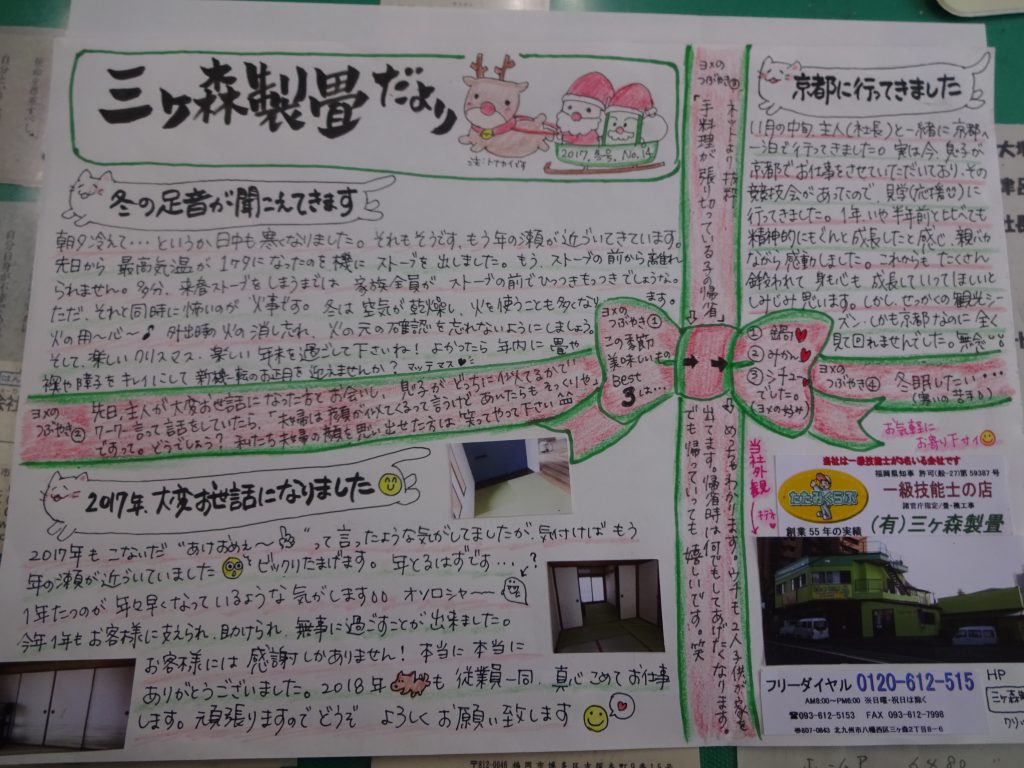 三ヶ森製畳だより
2017.冬号. No.14
注:トナカイです
冬の足音が聞こえてきます
朝夕冷えて…というか日中も寒くなりました。それもそうです、もう年の瀬が近づいてきています。
先日から 最高気温が1ケタになったのを機に ストーブを出しました。もう、ストーブの前から離れ
られません。多分、来春ストーブをしまうまでは 家族全員が ストーブの前でひっつきもっつきでしょうな。
ただ、それと同時に怖いのが 火事です。冬は空気が乾燥し、火を使うことも多くなります。
火の用〜心〜♪ 外出時の火の消し忘れ、火の元の確認を忘れないようにしましょう。
そして、楽しいクリスマス・楽しい年末を過ごして下さいね!よかったら 年内に畳や
襖や障子をキレイにして新機一転のお正月を迎えませんか?マッテマス♥
ヨメの
つぶやき②
先日、主人が大変お世話になった方とお会いし、息子がどっちに似てるかで
ワーワー言って話をしていたら、「夫婦は顔が似てくるって言うけど、あいたちも、そっくりや」
ですって。どうでしょう?私たち夫婦の顔を思い出せた方は 笑ってやって下さい
2017年、大変お世話になりました
2017年もこないだ“あけおめぇ〜”って言ったような気がしてましたが、気付けば もう
年の瀬が近づいていました ビックリたまげます。年とるはずです…?
1年たつのが 年々早くなっているような 気がします オソロシャ〜
今年1年もお客様に支えられ、助けられ、無事に過ごすことが 出来ました。
お客様には 感謝しかありません!本当に本当に
ありがとうございました。2018年 も 従業員一同、真心こめてお仕事
します。頑張りますので どうぞ よろしくお願い致します
ヨメの
つぶやき③
ネットより抜粋
「手料理が張り切っている子の帰省」
めっちゃわかります。ウチも2人子供が家を
出てます。帰省時は何でもしてあげたくなります。
でも帰っていっても 嬉しいです。笑
ヨメの
つぶやき①
この季節
美味しいもの
Best
3は…
① 鍋♥
② みかん♥
③ シチュー♥
でした。
(ヨメの好み)
ヨメの
つぶやき④
冬眠したい…
(寒いの苦手)
京都に行ってきました
11月の中旬、主人(社長)と一緒に京都へ
一泊で行ってきました。実は今、息子が
京都でお仕事をさせていただいており、その
競技会があったので、見学(応援!?)に
行ってきました。1年、いや半年前と比べても
精神的にもぐんと成長したと感じ、親バカ
ながら感動しました。これからも たくさん
鍛われて 身も心も 成長していってほしいと
しみじみ思います。しかし、せっかくの観光シー
ズン、しかも京都なのに 全く
見て回れませんでした。無念
お気軽に
お寄り下サイ
当社外観
当社は一級技能士が3名いる会社です
福岡県知事 許可(般-27)第59387号
一級技能士の店
諸官庁指定/畳・襖工事
たたみくらぶ
創業55年の実績
(有)三ヶ森製畳
フリーダイヤル 0120-612-515
AM8:00〜PM6:00 ※日曜・祝日は除く
☎093-612-5153 FAX 093-612-7998
〒807-0843 北九州市八幡西区三ヶ森2丁目8-6
HP
三ヶ森製
クリッ
〒812-0046 福岡市博多区吉塚本町9番15号